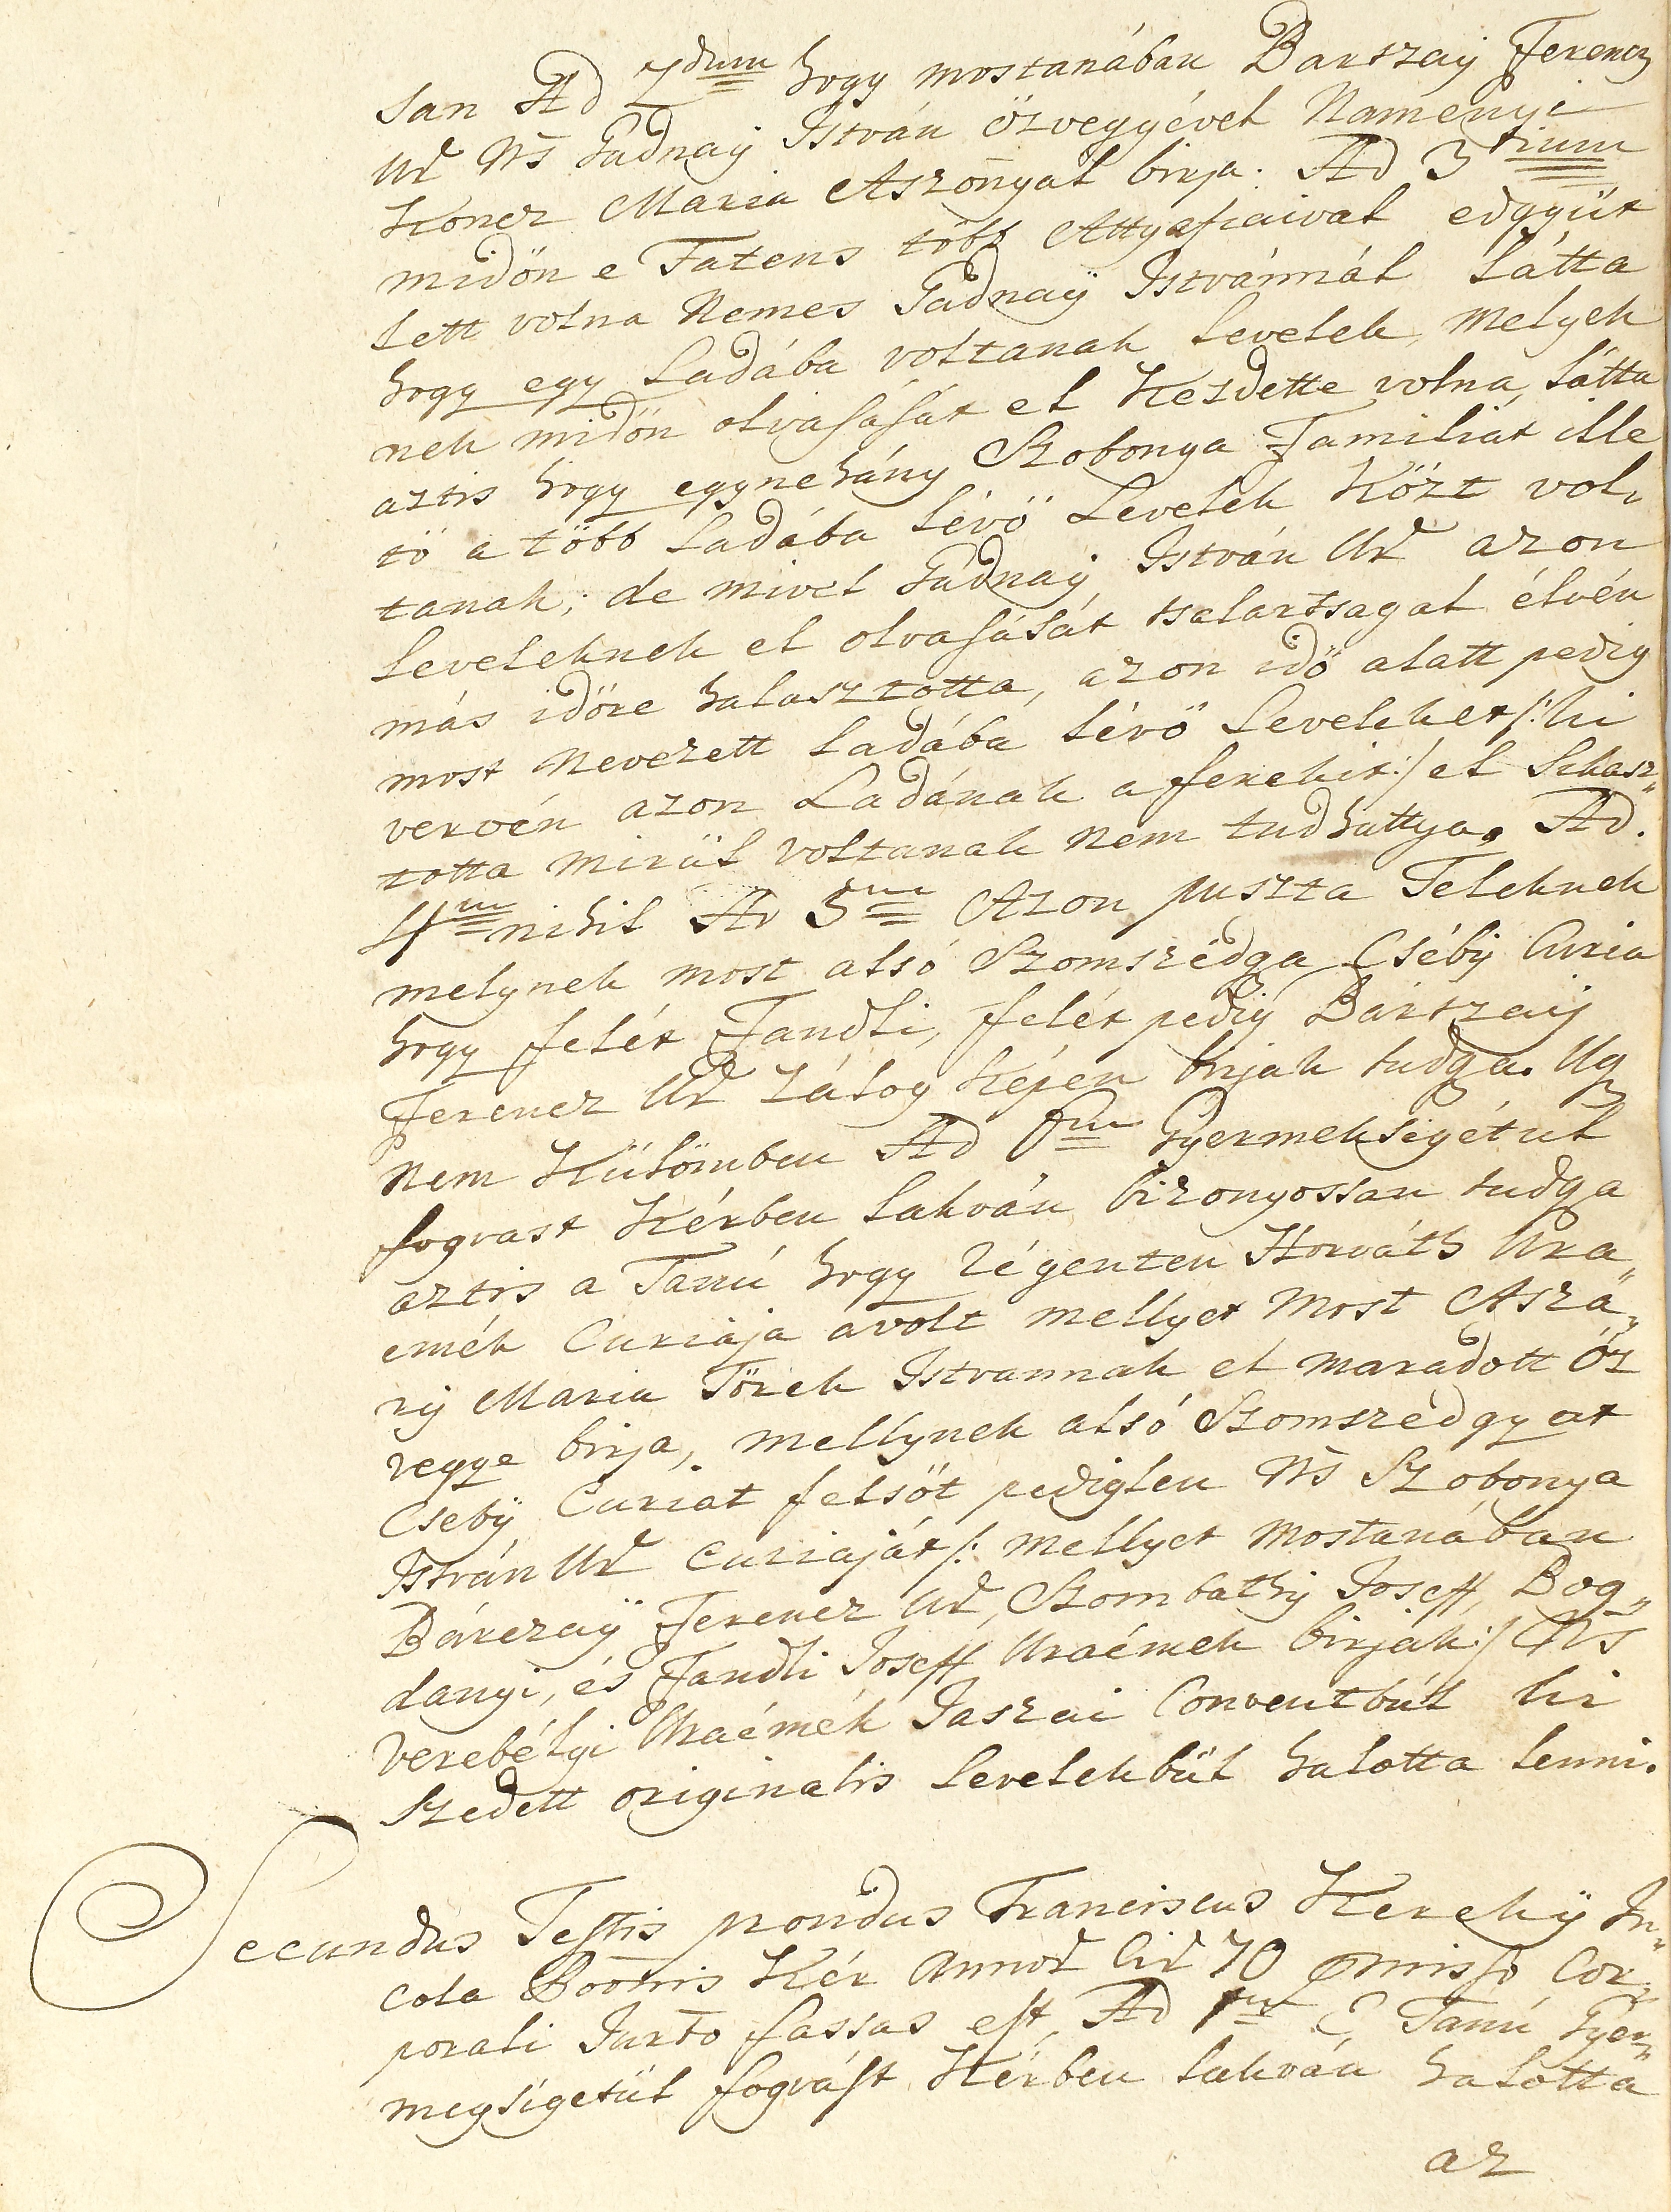 san Ad 2dum hogy mostanában Barszaÿ Ferencz
Ur Ns Gadnaÿ István özvegyével Namenyi
Koncz Maria Aszonyal birja. Ad 3tium
midön e Fatens több Attyafiaival edgyüt
lett volna Nemes Gadnaÿ Istvánnál látta
hogy egy Ladába voltanak levelek, melyek
nek midön olvasását el Kezdette volna, látta
aztis hogy egynehány Szobonya Familiát ille
tö a több Ladába lévö Levelek Közt vol,
tanak; de mivel Gadnaÿ István Ur azon
leveleknek el olvasását tsalartsagal élvén
más idöre halasztotta, azon idö alatt pedig
most nevezett Ladába lévö Leveleket /: ki
vervén azon Ladának a fenekit :/ el Sikasz„
totta mirül voltanak nem tudhattya. Ad.
4tum nihil Ad 5tum Azon puszta Teleknek
melynek most alsó Szomszédga Cséby Curia
hogy felét Fandli, felét pedig Bártzaÿ
Ferencz Ur Zálog Képen birjak tudga. Ug
nem Külömben Ad 6tum Gyermekségétül
fogvast Kérben lakván bizonyossan tudga
aztis a Tanú hogy Régenten Horváth Ura„
emék Curiája avolt mellyet most Aszá„
rÿ Maria Törek Istvannak el maradott Öz
vegye birja, mellynek alsó Szomszedgyat
Csebÿ Curiat felsöt pediglen Ns Szobonya
István Ur Curiaját /: mellyet mostanában
Bárczaÿ Ferencz Ur, Szombathÿ Joseff, Bog„
danyi, és Fandli Joseff Uraémek birják :/ Ns
Verebélyi Uraémék Jaszai Conventbúl ki
szedett originalis levelekbül halotta lenni.
Secundus Testis nondus Franciscus Kerekÿ In„
cola Poonis Kér Annor Cir 70 Pmisso Cor„
porali Jurto fassus est, Ad 1um E Tanú Gyer„
megsigetül fogvást Kérben lakván halotta
az